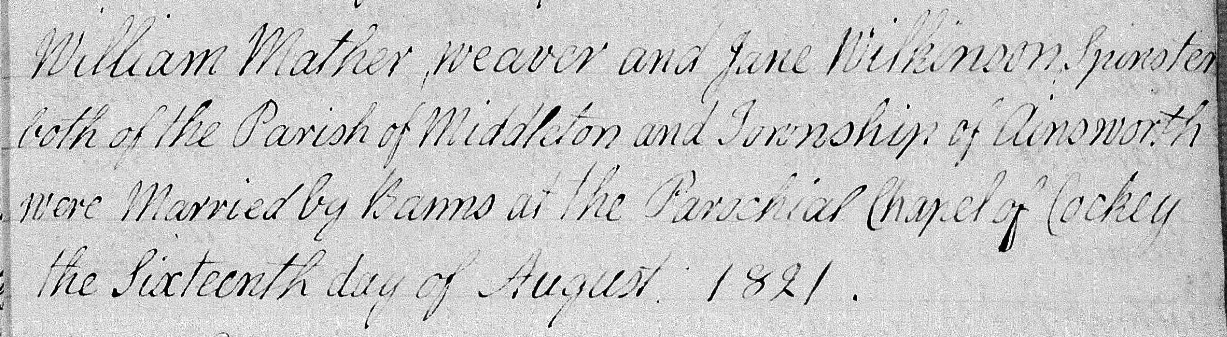 William Mather, weaver and Jane Wilkinson, Spinster
both of the Parish of Middleton and Township of Ainsworth
were Married by Banns at the Parochial Chapel of Cockey
the Sixteenth day of August. 1821.